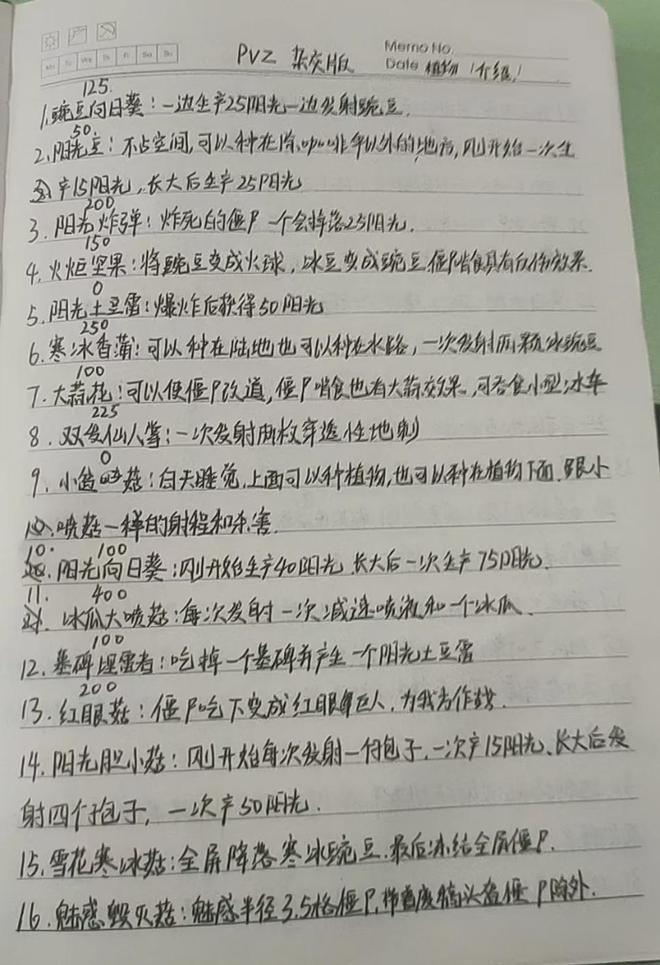 Mo Tu We Th Fr Sa Su
PVZ 杂交版
Memo No.
Date 植物（介绍）
125
1.豌豆向日葵：一边生产25阳光一边发射豌豆.
50
2.阳光豆：不占空间,可以种在除咖啡外的地方,刚开始一次生
产15阳光,长大后生产25阳光
200
3.阳光炸弹：炸死的僵尸一个会掉落25阳光.
150
4.火炬坚果：将豌豆变成火球,冰豆变成豌豆僵尸啃食具有反伤效果.
0
5.阳光土豆雷：爆炸后获得50阳光
250
6.寒冰香蒲：可以种在陆地也可以种在水路,一次发射两颗冰豌豆
100
7.大蒜花：可以使僵尸改道,僵尸啃食也有大蒜效果,可吞食小型冰车
225
8.双发仙人掌：一次发射两枚穿透性地刺
0
9.小盆菇：白天睡觉,上面可以种植物,也可以种在植物下面.跟小
喷菇一样的射程和杀害.
100
10.阳光向日葵：刚开始生产40阳光 长大后一次生产75阳光.
400
11.冰瓜大喷菇：每次发射一次减速喷液和一个冰瓜.
100
12.墓碑埋雷者：吃掉一个墓碑并产生一个阳光土豆雷
200
13.红眼菇：僵尸吃下变成红眼巨人,为我方作战.
14.阳光胆小菇：刚开始每次发射一个孢子,一次产15阳光、长大后发
射四个孢子,一次产50阳光.
15.雪花寒冰菇：全屏降落寒冰豌豆.最后冻结全屏僵尸.
16.魅惑毁灭菇：魅惑半径3.5格僵尸,僵尸除外.